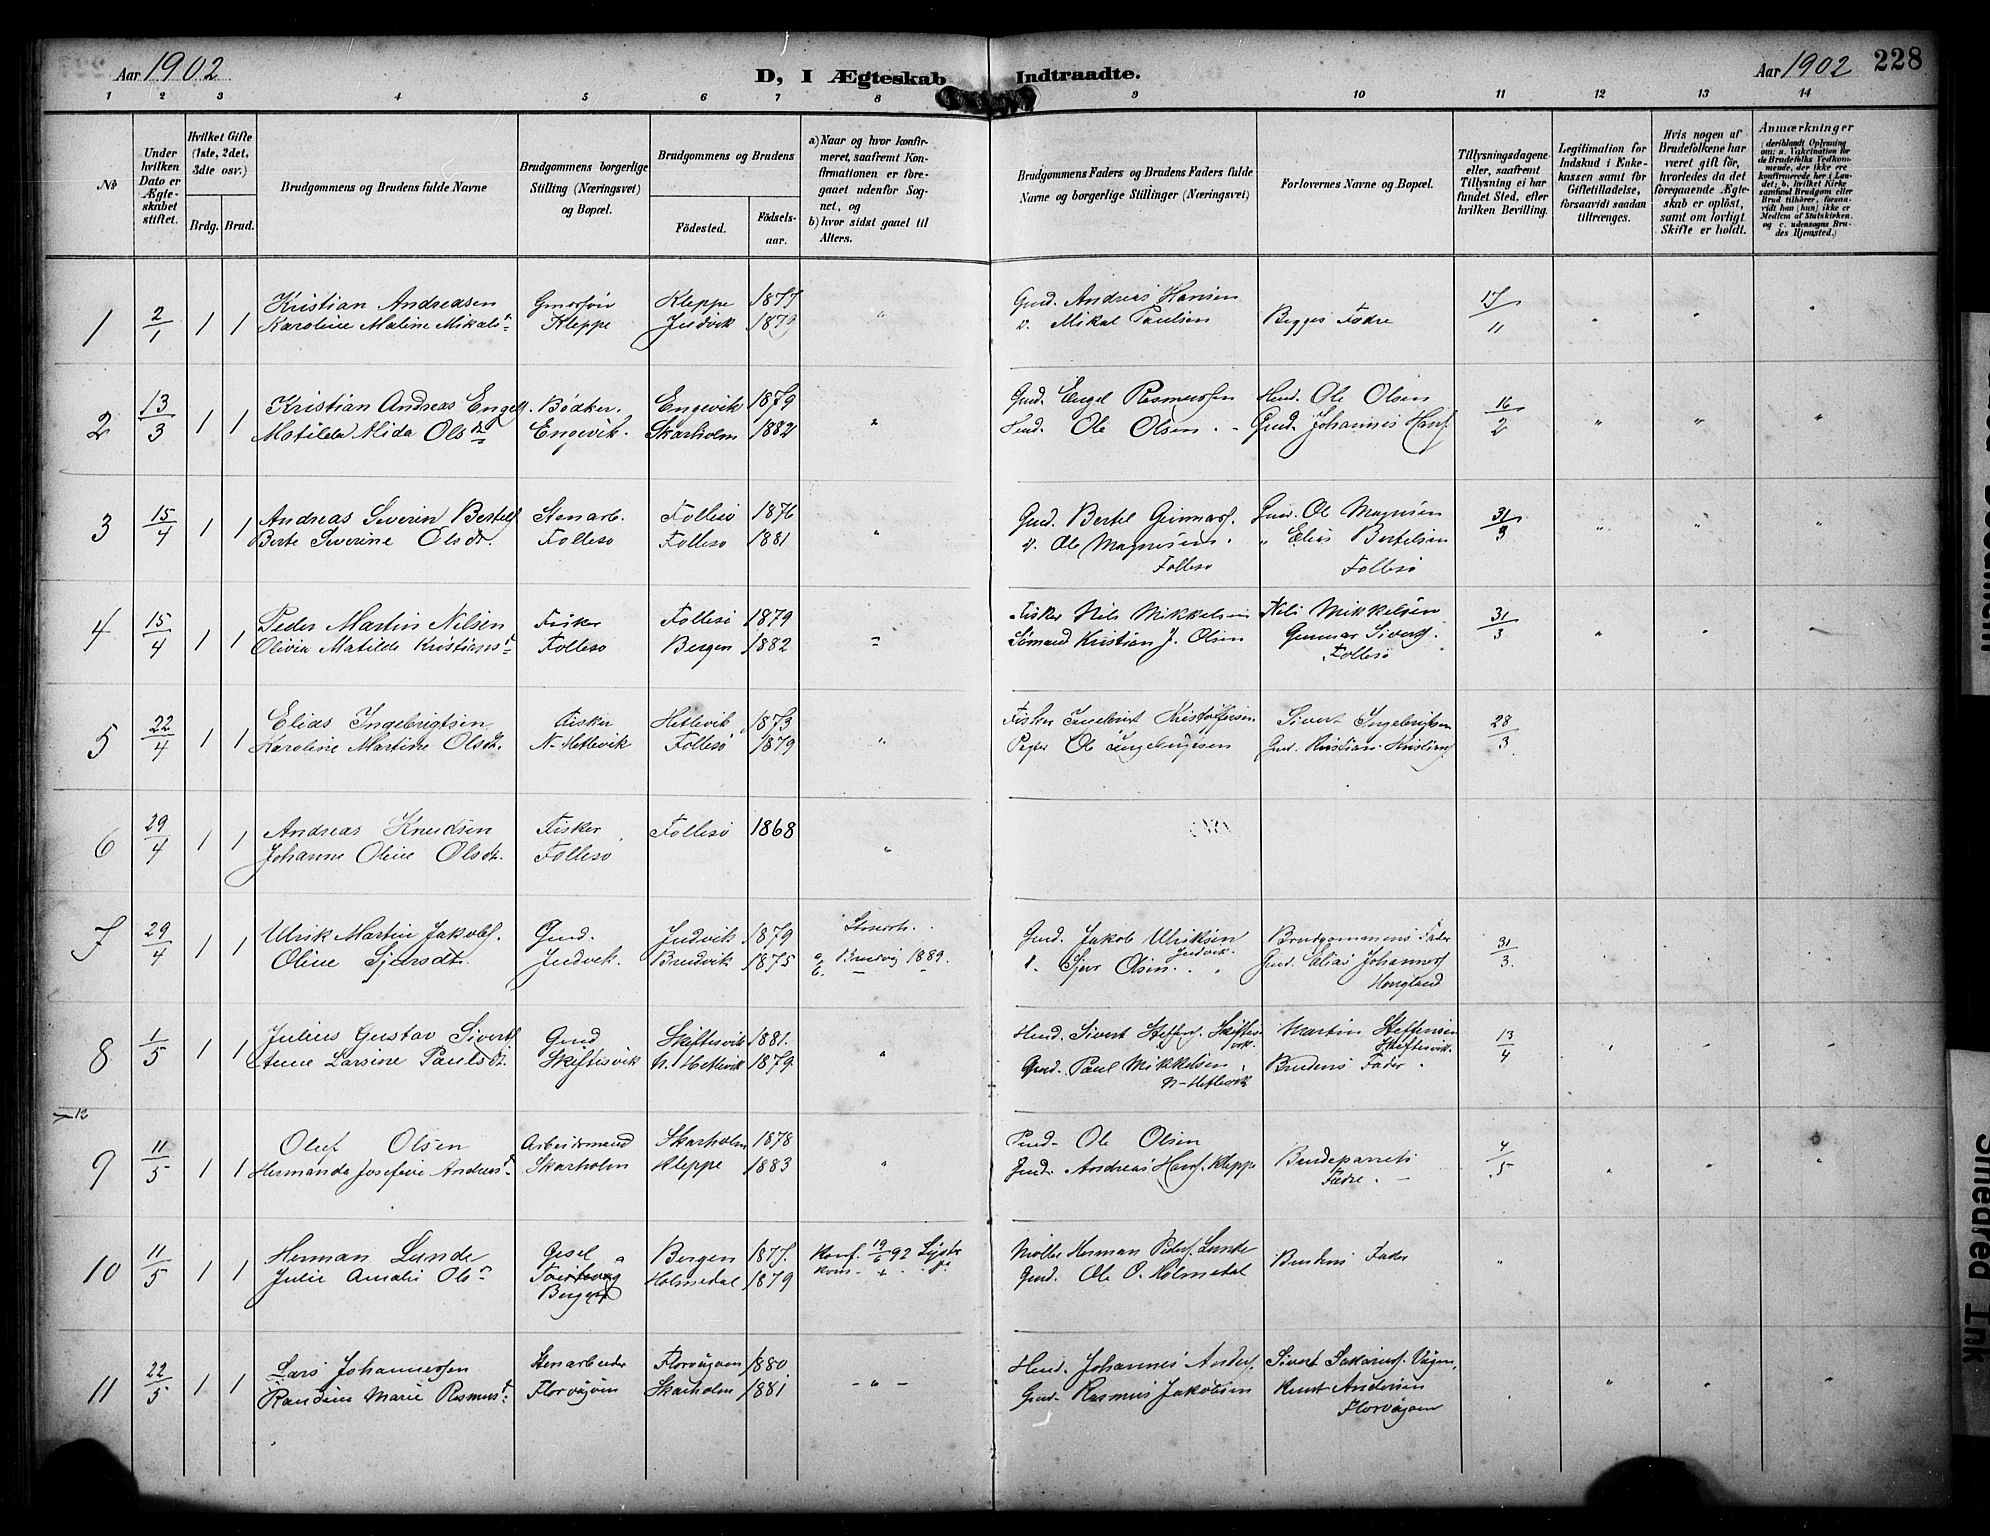 Aar 1902
D, I Ægteskab Indtraadte.
Aar 1902 228
1 2 3 4 5 6 7 8 9 10 11 12 13 14
№
Under hvilken Dato er Ægteskabet stiftet.
Hvilket Gifte (1ste, 2det, 3die osv.)
Brdg. Brud.
Brudgommens og Brudens fulde Navne
Brudgommens borgerlige Stilling (Næringsvei) og Bopæl.
Brudgommens og Brudens
Fødested.
Fødselsaar.
a) Naar og hvor konfirmeret, saafremt Konfirmationen er foregaaet udenfor Sognet, og
b) hvor sidst gaaet til Alters.
Brudgommens Faders og Brudens Faders fulde Navne og borgerlige Stillinger (Næringsvei)
Forlovernes Navne og Bopæl.
Tillysningsdagene eller, saafremt Tillysning ei har fundet Sted, efter hvilken Bevilling.
Legitimation for Indskud i Enkekassen samt for Giftetilladelse, forsaavidt saadan tiltrænges.
Hvis nogen af Brudefolkene har været gift før, hvorledes da det foregaaende Ægteskab er opløst, samt om lovligt Skifte er holdt.
Anmærkninger
(deriblandt Oplysning om: a. Vakcination for de Brudefolks Vedkommende, der ikke ere konfirmerede her i Landet; b. hvilket Kirkesamfund Brudgom eller Brud tilhører, forsaavidt han (hun) ikke er Medlem af Statskirken. og c. udensogns Brudes Hjemsted.)
1 2/1 1 1 Kristian Andreasen Kleppe 1877 Gmd. Andreas Hansen 17/11
Karoline Maline Mikalsd Kleppe Judvik 1879 Mikal Paulsen Begges Fædre
2 13/3 1 1 Kristian Andreas Engels. Bødker. Engevik 1879 Gmd. Engel Rasmussen Hmd. Ole Olsen 16/2
Matilda Alida Olsdt Engevik. Skarholm 1882 Hmd. Ole Olsen. Gmd. Johannes Hans.
3 15/4 1 1 Andreas Severin Bertels Stenarb. Follesø 1876 Gmd. Bertel Gunnars. Gmd. Ol Magnusen 31/3
Berte Severine Olsdt. Follesø Follesø 1881 Ole Magnusen. " Elias Bertelsen
Follesø Follesø
4 15/4 1 1 Peder Martin Nilsen Fisker Follesø 1879 Fisker Nils Mikkelsen Nils Mikkelsen 31/3
Olivia Matilde Kristiansd Follesø Bergen 1882 Sømand Kristian J. Olsen Gunnar Siverts.
Follesø
5 22/4 1 1 Elias Ingebrigtsen Fisker Hetlevik 1873 Fisker Ingebrigt Kristoffersen Sivert Ingebrigtsen 28/3
Karoline Martine Olsdt. N-Hetlevik Follesø 1879 Ole Ingebrigtsen Gmd. Kristian Kristians
6 29/4 1 1 Andreas Knudsen Fisker Follesø 1868
Johanne Oline Olsdt. Follesø
7 29/4 1 1 Ulrik Martin Jakobs. Gmd. Judvik 1879 Gmd. Jakob Ulriksen Brudgommens Fader 31/3
Oline Sjursdt. Judvik. Bruvik 1875 a/b Bruvig 1889. Sjur Olsen. Judvik. Gmd. Elias Johannes
Hougland
8 1/5 1 1 Julius Gustav Siverts Gmd Skiftesvik 1881. Hmd. Sivert Steffens. Skiftesvik. Martin Steffensen 13/4
Anne Larsine Paulsdt. Skiftesvik N. Hetlevik 1879. Gmd. Paul Mikkelsen Skiftesvik.
N-Hetlevik Brudens Fader
9 11/5 1 1 Oluf Olsen Arbeidsmand Skarholm 1878 Ole Olsen 4/5
Hermanda Josefine Andreasd Skarholm Kleppe 1883 Gmd. Andreas Hans. Kleppe Brudeparrets Fædre.
10 11/5 1 1 Herman Lunde Bergen 1877. Konf. 19/6 92 Møller Herman Peders. Lunde Brudens Fader
Julie Amalie Olsd Holmedal 1879 Gmd. Ole O. Holmedal
Bergen
11 22/5 1 1 Lars Johannessen Stenarbeider Florvågøen 1880 Hmd. Johannes Anders. Sivert Sakarias. Vågen,
Randine Marie Rasmusd Florvågøen Skarholm 1881 Gmd. Rasmus Jakobsen Knut Andersen
Florvågøen
Smeared Ink